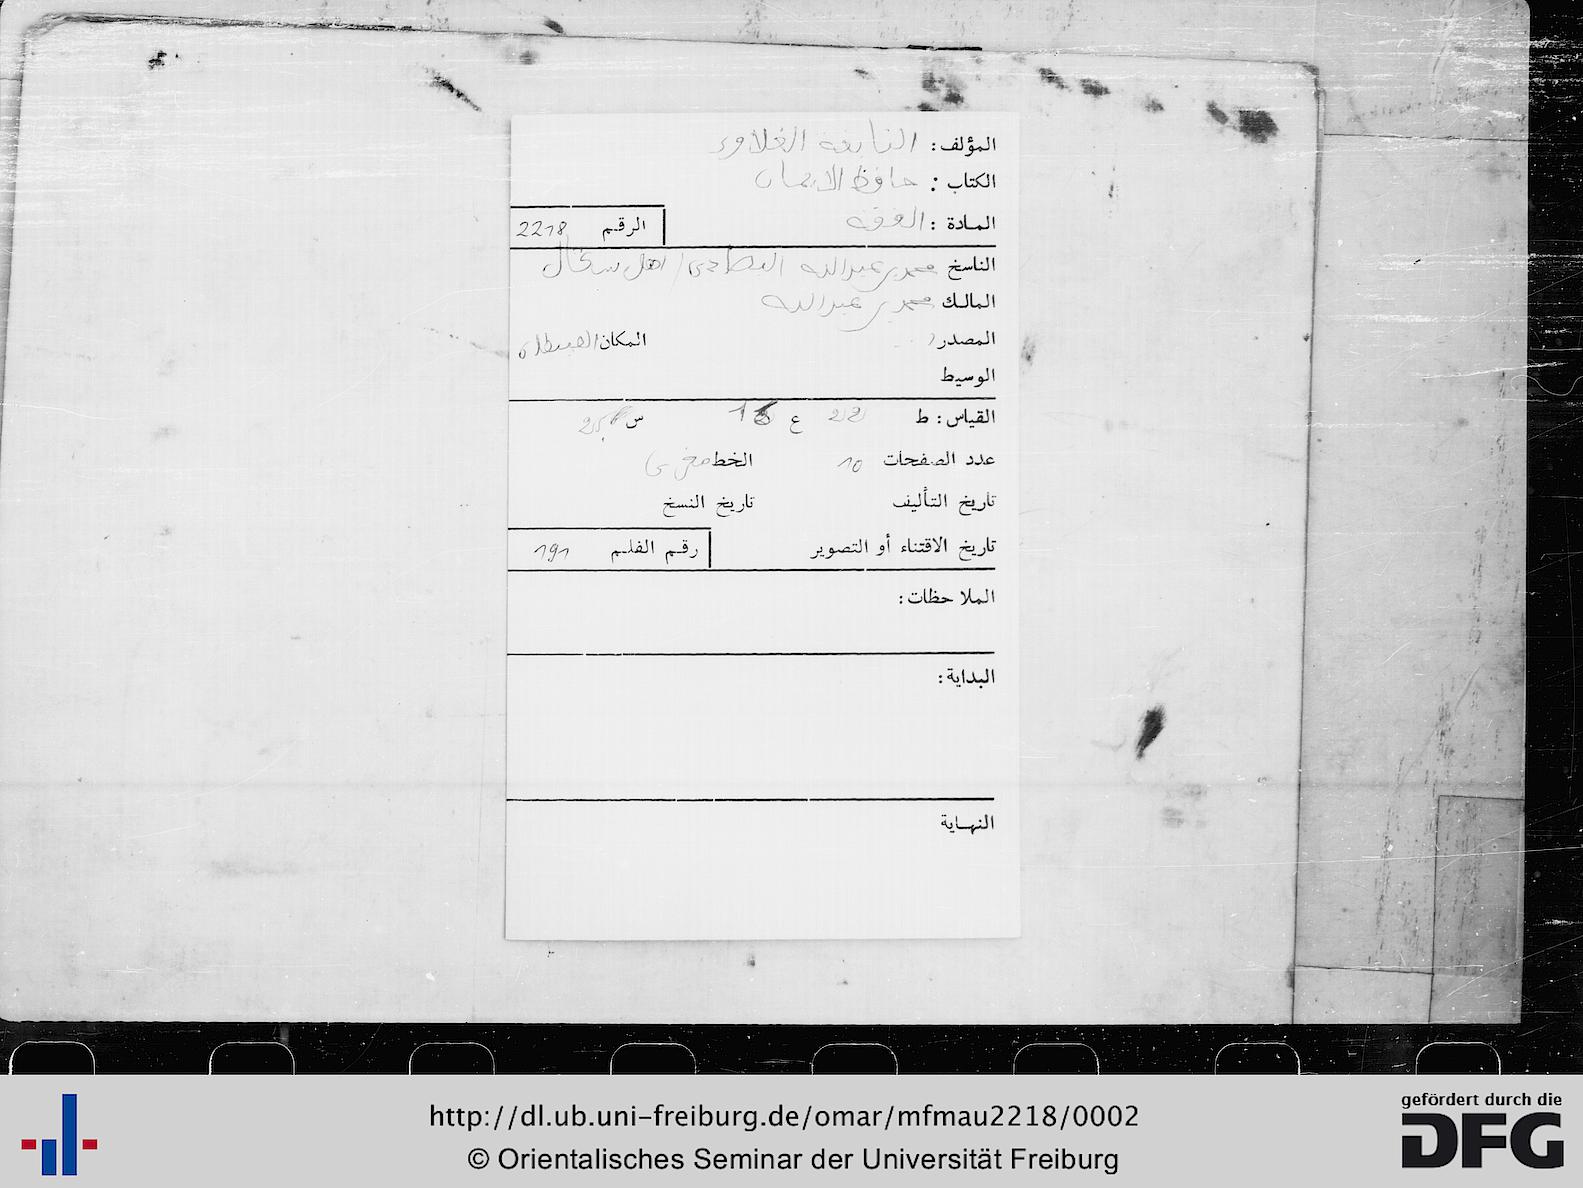 المؤلف: النابغة الغلاوي
الكتاب: حافظ الايمان
المادة: الفقه
الرقم 2218
الناسخ محمد بن عبد الله / اهل
المالك محمد بن عبد الله
المصدر
المكان
الوسيط
القياس: ط 22 ع س
عدد الصفحات 10 الخط مغربي
تاريخ التأليف تاريخ النسخ
تاريخ الاقتناء أو التصوير رقم الفلم 191
الملاحظات:
البداية:
النهاية
http://dl.ub.uni-freiburg.de/omar/mfmau2218/0002
© Orientalisches Seminar der Universität Freiburg
gefördert durch die
DFG